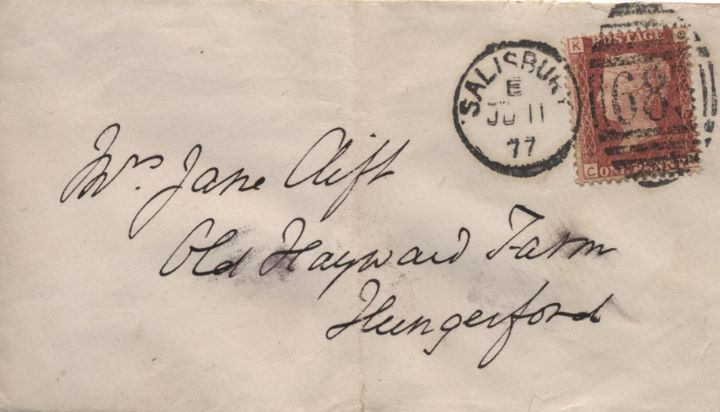 SALISBURY
E
JU 11
77
K
POSTAGE
68
C
ONE
Mrs Jane Clift
Old Hayward Farm
Hungerford